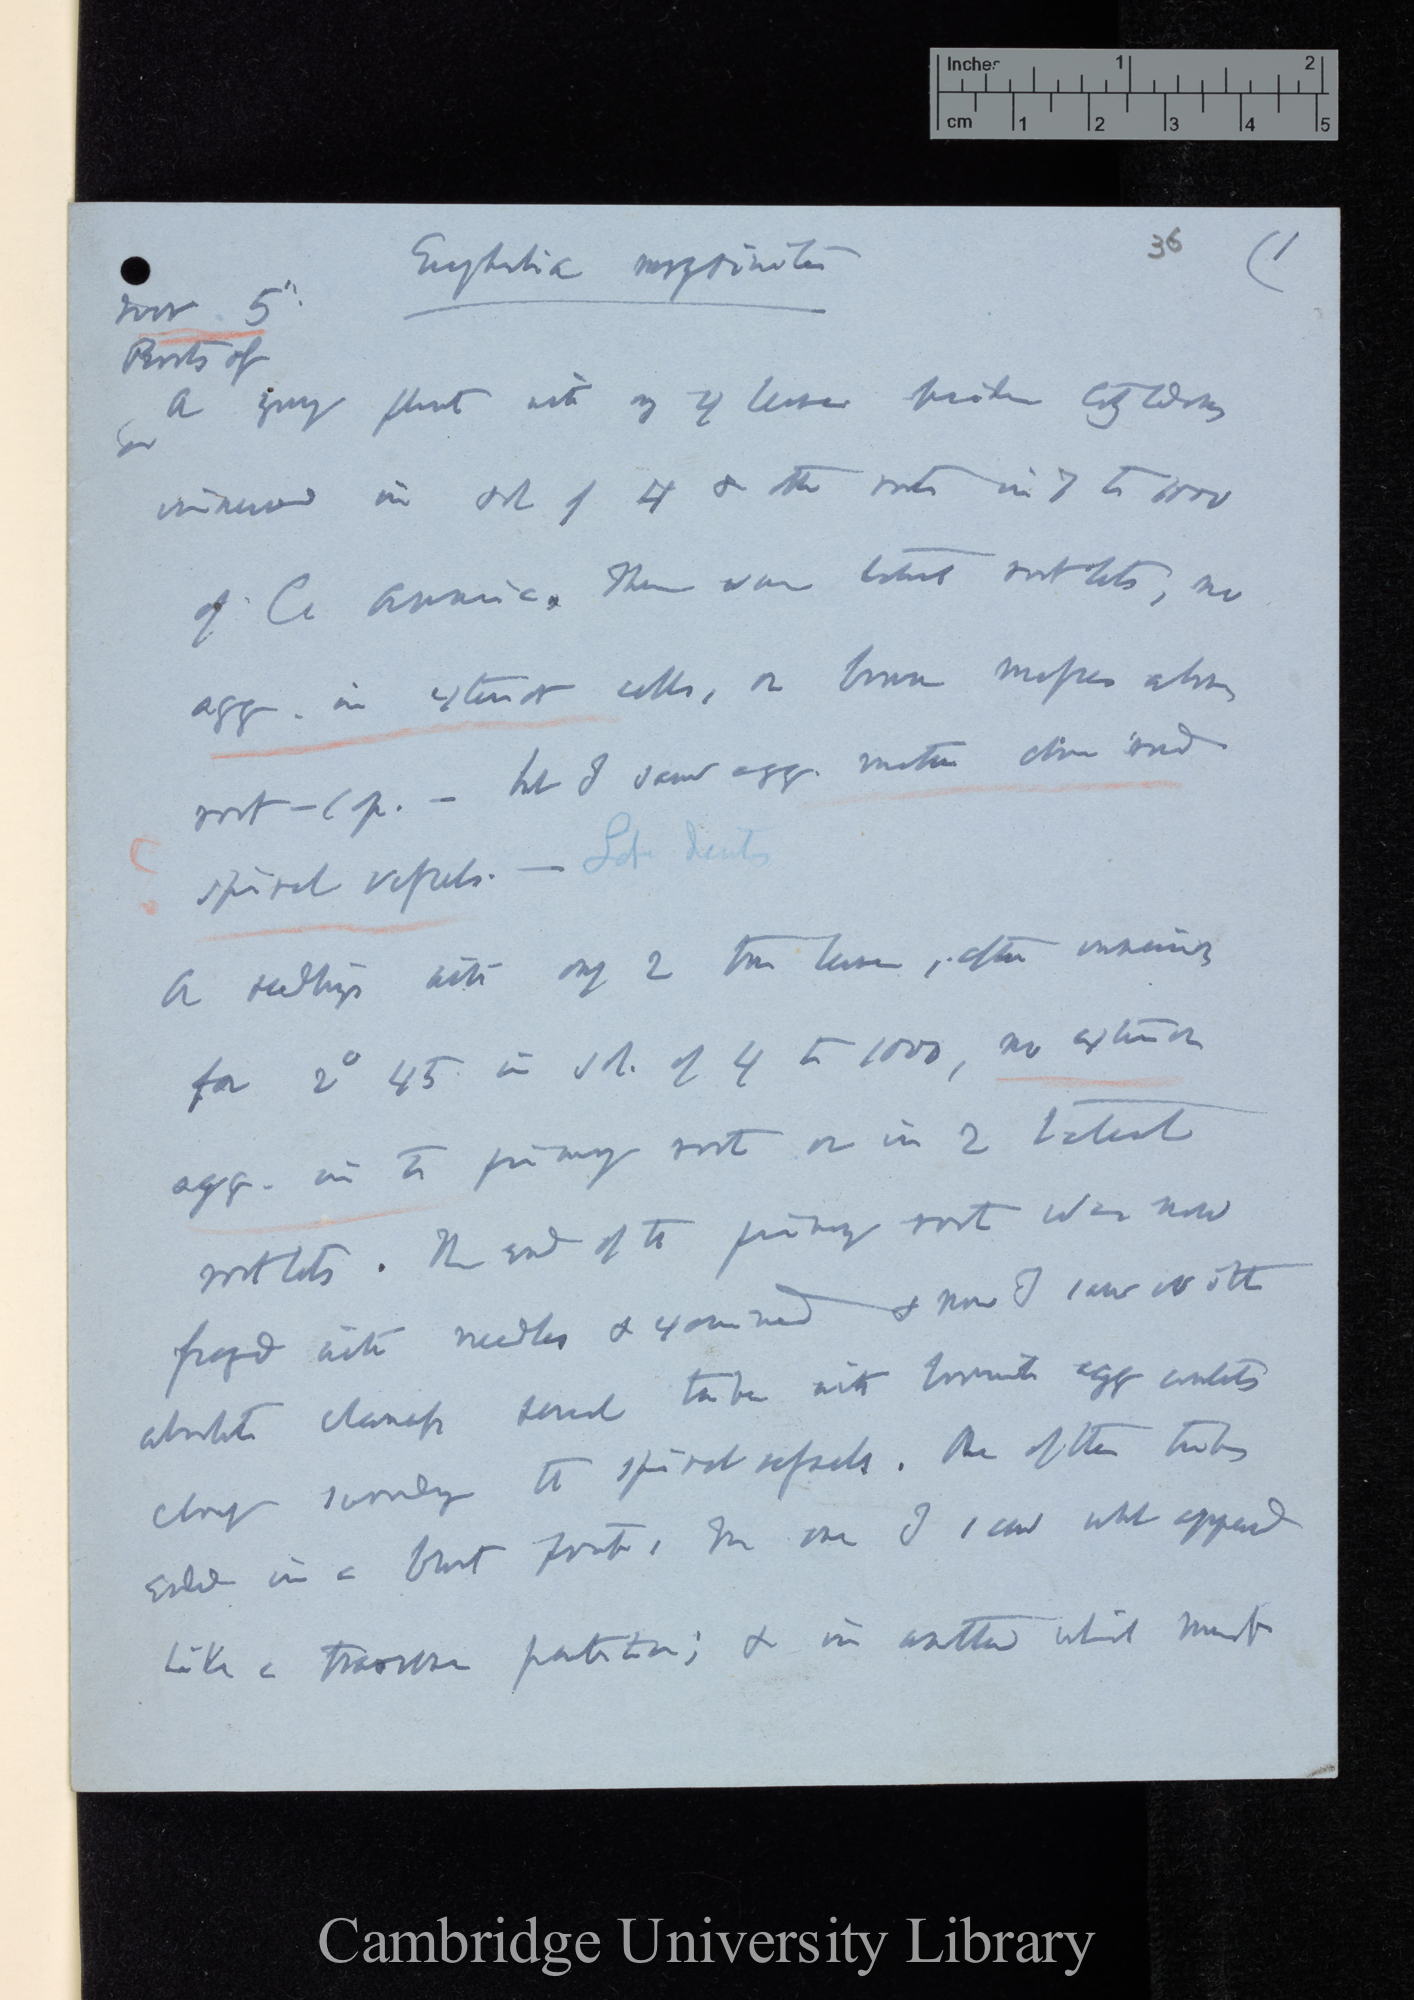 Inches 1 2
cm 1 2 3 4 5
36 (1
Euphorbia myrsinites
Nov 5"
Roots of
A young plant with only 4 leaves besides Cotyledons
immersed in sol of 4 & other roots in 7 to 1000
of C. Ammonia. There were lateral rootlets, no
agg. in exterior cells, or brown masses above
root-cap. — but I saw agg. matter
spiral vessels. —
A seedling with only 2 true leaves, after immersion
for 2° 45 in sol. of 4 to 1000, no exterior
agg. in the primary root or in 2 lateral
rootlets. The end of the primary root was now
with needles & examined & now I saw with
absolute clearness several tubes with brownish agg contents
closely surrounding the spiral vessels. One of these tubes
ended in a blunt point, In one I saw what appeared
like a transverse partition; & in another which must
Cambridge University Library